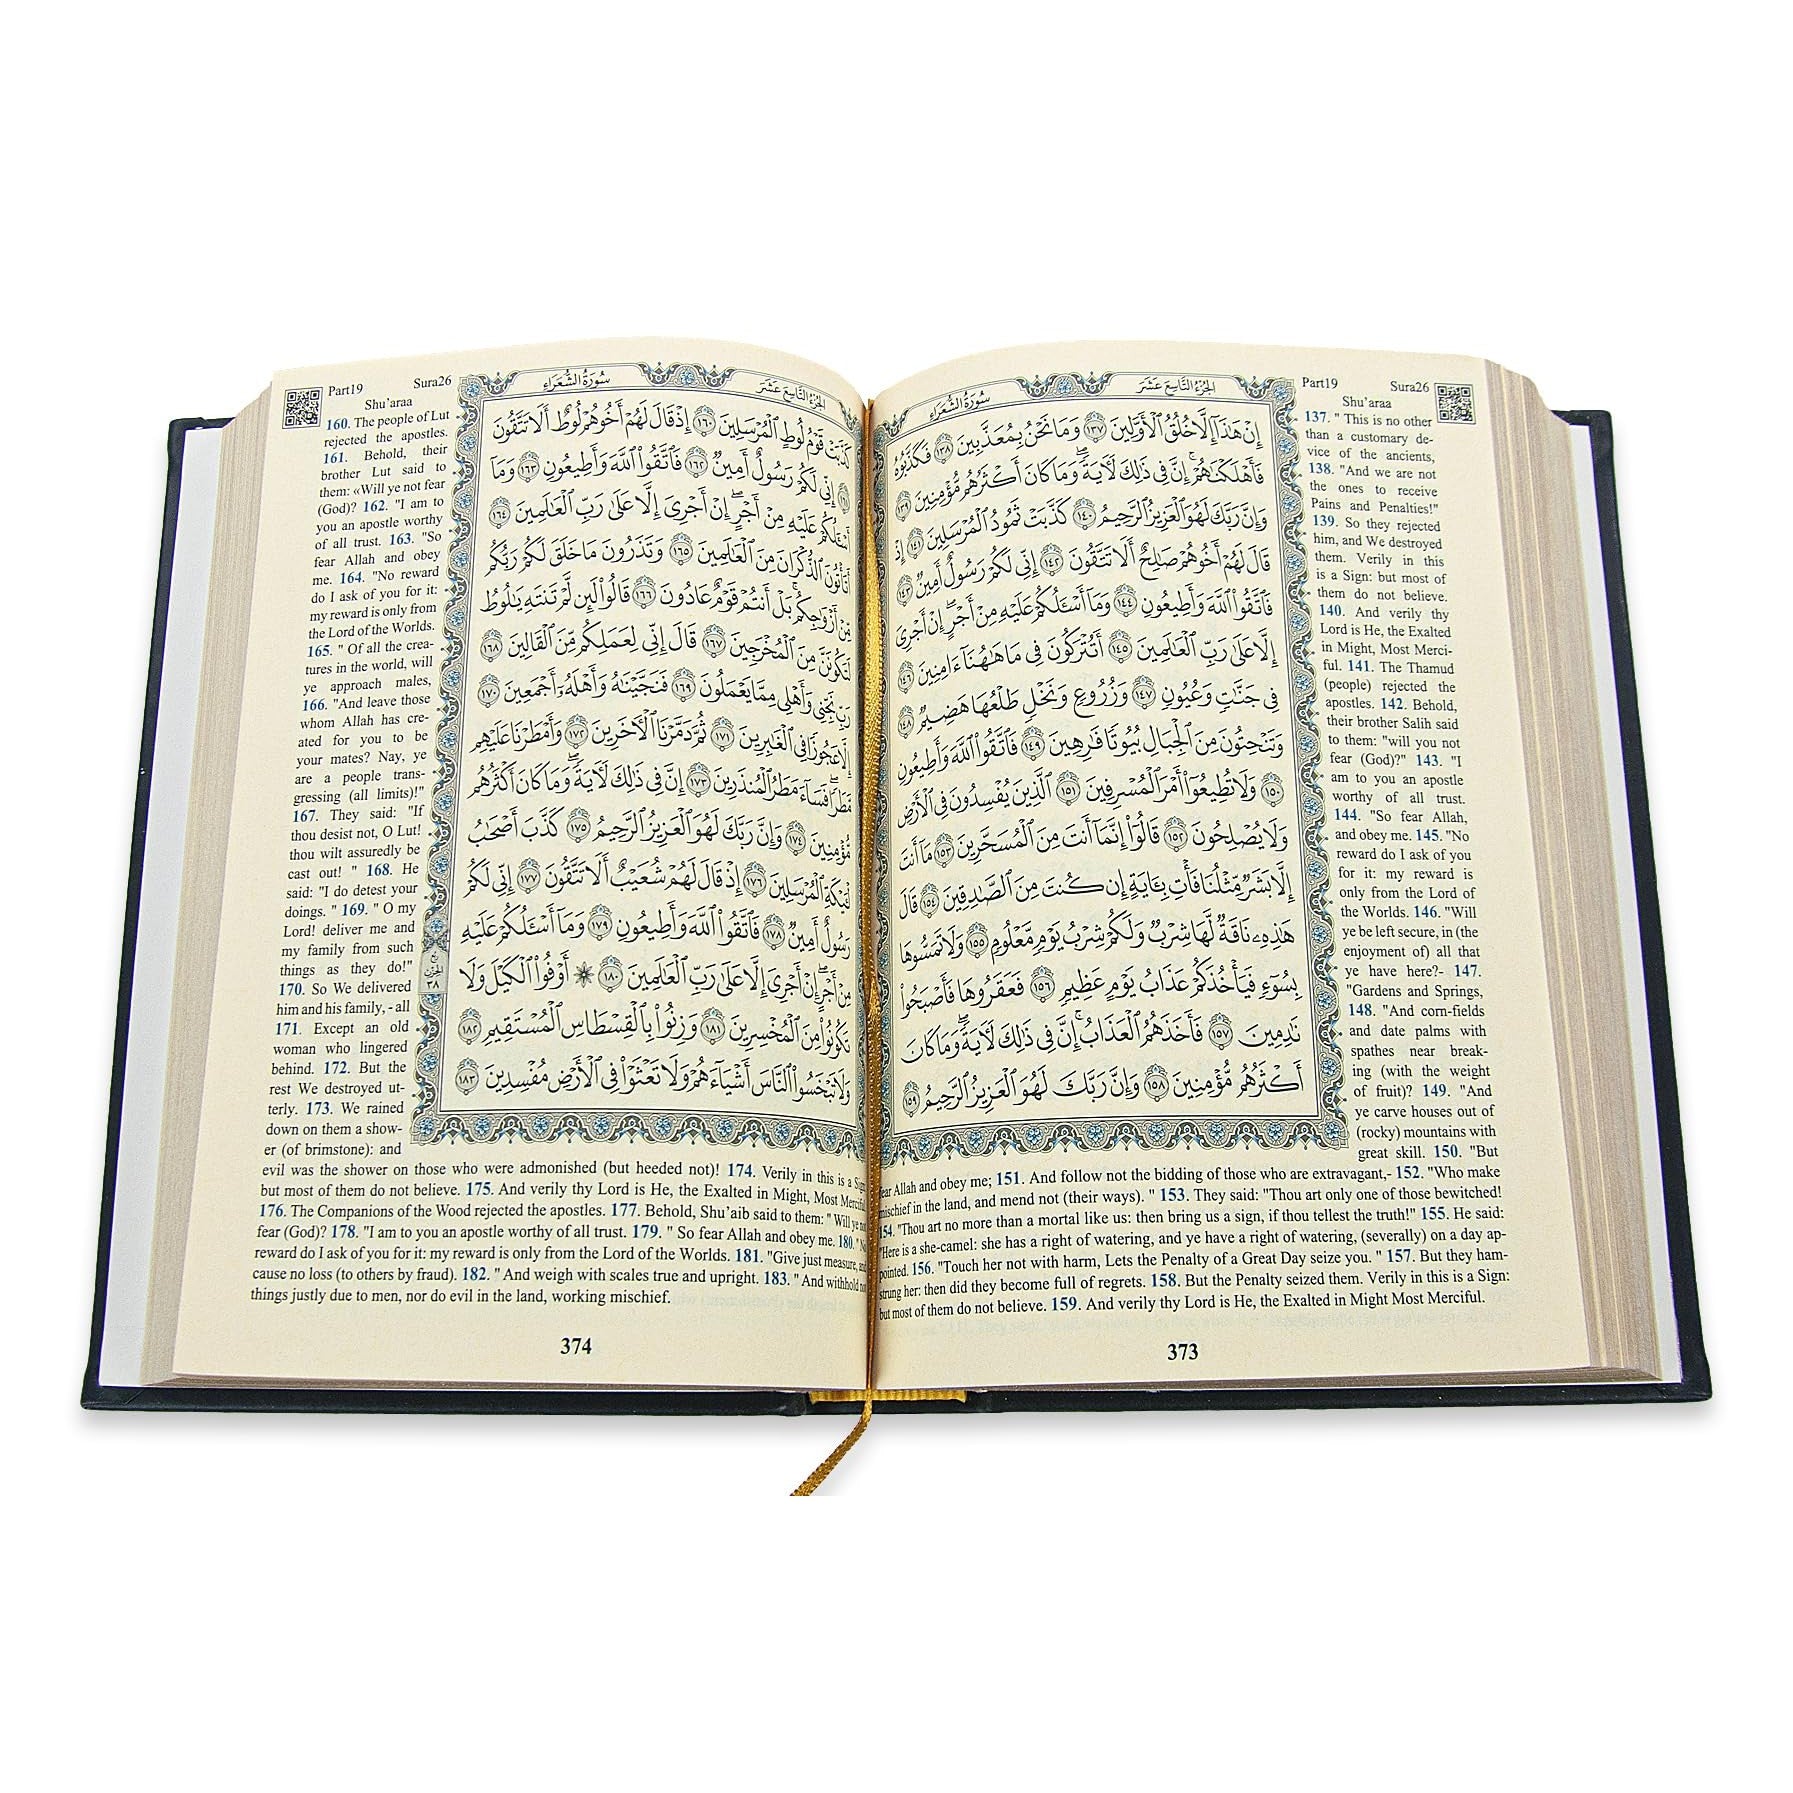 Part19 Sura26
Shu’araa
سُورَةُ الشُّعَرَاءِ
الجُزْءُ التَّاسِعَ عَشَرَ
إِنْ هَٰذَآ إِلَّا خُلُقُ ٱلْأَوَّلِينَ ١٣٧ وَمَا نَحْنُ بِمُعَذَّبِينَ ١٣٨ فَكَذَّبُوهُ
فَأَهْلَكْنَٰهُمْ ۗ إِنَّ فِى ذَٰلِكَ لَءَايَةً ۖ وَمَا كَانَ أَكْثَرُهُم مُّؤْمِنِينَ ١٣٩
وَإِنَّ رَبَّكَ لَهُوَ ٱلْعَزِيزُ ٱلرَّحِيمُ ١٤٠ كَذَّبَتْ ثَمُودُ ٱلْمُرْسَلِينَ ١٤١ إِذْ
قَالَ لَهُمْ أَخُوهُمْ صَٰلِحٌ أَلَا تَتَّقُونَ ١٤٢ إِنِّى لَكُمْ رَسُولٌ أَمِينٌ ١٤٣
فَٱتَّقُوا۟ ٱللَّهَ وَأَطِيعُونِ ١٤٤ وَمَآ أَسْـَٔلُكُمْ عَلَيْهِ مِنْ أَجْرٍ ۖ إِنْ أَجْرِىَ
إِلَّا عَلَىٰ رَبِّ ٱلْعَٰلَمِينَ ١٤٥ أَتُتْرَكُونَ فِى مَا هَٰهُنَآ ءَامِنِينَ ١٤٦
فِى جَنَّٰتٍ وَعُيُونٍ ١٤٧ وَزُرُوعٍ وَنَخْلٍ طَلْعُهَا هَضِيمٌ ١٤٨
وَتَنْحِتُونَ مِنَ ٱلْجِبَالِ بُيُوتًا فَٰرِهِينَ ١٤٩ فَٱتَّقُوا۟ ٱللَّهَ وَأَطِيعُونِ
١٥٠ وَلَا تُطِيعُوٓا۟ أَمْرَ ٱلْمُسْرِفِينَ ١٥١ ٱلَّذِينَ يُفْسِدُونَ فِى ٱلْأَرْضِ
وَلَا يُصْلِحُونَ ١٥٢ قَالُوٓا۟ إِنَّمَآ أَنتَ مِنَ ٱلْمُسَحَّرِينَ ١٥٣ مَآ أَنتَ
إِلَّا بَشَرٌ مِّثْلُنَا فَأْتِ بِـَٔايَةٍ إِن كُنتَ مِنَ ٱلصَّٰدِقِينَ ١٥٤ قَالَ
هَٰذِهِۦ نَاقَةٌ لَّهَا شِرْبٌ وَلَكُمْ شِرْبُ يَوْمٍ مَّعْلُومٍ ١٥٥ وَلَا تَمَسُّوهَا
بِسُوٓءٍ فَيَأْخُذَكُمْ عَذَابُ يَوْمٍ عَظِيمٍ ١٥٦ فَعَقَرُوهَا فَأَصْبَحُوا۟
نَٰدِمِينَ ١٥٧ فَأَخَذَهُمُ ٱلْعَذَابُ ۗ إِنَّ فِى ذَٰلِكَ لَءَايَةً ۖ وَمَا كَانَ
أَكْثَرُهُم مُّؤْمِنِينَ ١٥٨ وَإِنَّ رَبَّكَ لَهُوَ ٱلْعَزِيزُ ٱلرَّحِيمُ ١٥٩
137. " This is no other
than a customary de-
vice of the ancients,
138. "And we are not
the ones to receive
Pains and Penalties!"
139. So they rejected
him, and We destroyed
them. Verily in this
is a Sign: but most of
them do not believe.
140. And verily thy
Lord is He, the Exalted
in Might, Most Merci-
ful. 141. The Thamud
(people) rejected the
apostles. 142. Behold,
their brother Salih said
to them: "will you not
fear (God)?" 143. "I
am to you an apostle
worthy of all trust.
144. "So fear Allah,
and obey me. 145. "No
reward do I ask of you
for it: my reward is
only from the Lord of
the Worlds. 146. "Will
ye be left secure, in (the
enjoyment of) all that
ye have here?- 147.
"Gardens and Springs,
148. "And corn-fields
and date palms with
spathes near break-
ing (with the weight
of fruit)? 149. "And
ye carve houses out of
(rocky) mountains with
great skill. 150. "But
fear Allah and obey me; 151. And follow not the bidding of those who are extravagant,- 152. "Who make
mischief in the land, and mend not (their ways). " 153. They said: "Thou art only one of those bewitched!
154. "Thou art no more than a mortal like us: then bring us a sign, if thou tellest the truth!" 155. He said:
"Here is a she-camel: she has a right of watering, and ye have a right of watering, (severally) on a day ap-
pointed. 156. "Touch her not with harm, Lets the Penalty of a Great Day seize you. " 157. But they ham-
strung her: then did they become full of regrets. 158. But the Penalty seized them. Verily in this is a Sign:
but most of them do not believe. 159. And verily thy Lord is He, the Exalted in Might Most Merciful.
373
Part19 Sura26
Shu’araa
سُورَةُ الشُّعَرَاءِ
الجُزْءُ التَّاسِعَ عَشَرَ
كَذَّبَتْ قَوْمُ لُوطٍ ٱلْمُرْسَلِينَ ١٦٠ إِذْ قَالَ لَهُمْ أَخُوهُمْ لُوطٌ أَلَا تَتَّقُونَ
إِنِّى لَكُمْ رَسُولٌ أَمِينٌ ١٦٢ فَٱتَّقُوا۟ ٱللَّهَ وَأَطِيعُونِ ١٦٣ وَمَآ
أَسْـَٔلُكُمْ عَلَيْهِ مِنْ أَجْرٍ ۖ إِنْ أَجْرِىَ إِلَّا عَلَىٰ رَبِّ ٱلْعَٰلَمِينَ ١٦٤
أَتَأْتُونَ ٱلذُّكْرَانَ مِنَ ٱلْعَٰلَمِينَ ١٦٥ وَتَذَرُونَ مَا خَلَقَ لَكُمْ رَبُّكُم
مِّنْ أَزْوَٰجِكُم ۚ بَلْ أَنتُمْ قَوْمٌ عَادُونَ ١٦٦ قَالُوا۟ لَئِن لَّمْ تَنتَهِ يَٰلُوطُ
لَتَكُونَنَّ مِنَ ٱلْمُخْرَجِينَ ١٦٧ قَالَ إِنِّى لِعَمَلِكُم مِّنَ ٱلْقَالِينَ ١٦٨
رَبِّ نَجِّنِى وَأَهْلِى مِمَّا يَعْمَلُونَ ١٦٩ فَنَجَّيْنَٰهُ وَأَهْلَهُۥٓ أَجْمَعِينَ ١٧٠
إِلَّا عَجُوزًا فِى ٱلْغَٰبِرِينَ ١٧١ ثُمَّ دَمَّرْنَا ٱلْءَاخَرِينَ ١٧٢ وَأَمْطَرْنَا عَلَيْهِم
مَّطَرًا ۖ فَسَآءَ مَطَرُ ٱلْمُنذَرِينَ ١٧٣ إِنَّ فِى ذَٰلِكَ لَءَايَةً ۖ وَمَا كَانَ أَكْثَرُهُم
مُّؤْمِنِينَ ١٧٤ وَإِنَّ رَبَّكَ لَهُوَ ٱلْعَزِيزُ ٱلرَّحِيمُ ١٧٥ كَذَّبَ أَصْحَٰبُ
لْـَٔيْكَةِ ٱلْمُرْسَلِينَ ١٧٦ إِذْ قَالَ لَهُمْ شُعَيْبٌ أَلَا تَتَّقُونَ ١٧٧ إِنِّى لَكُمْ
رَسُولٌ أَمِينٌ ١٧٨ فَٱتَّقُوا۟ ٱللَّهَ وَأَطِيعُونِ ١٧٩ وَمَآ أَسْـَٔلُكُمْ عَلَيْهِ
مِنْ أَجْرٍ ۖ إِنْ أَجْرِىَ إِلَّا عَلَىٰ رَبِّ ٱلْعَٰلَمِينَ ١٨٠ ۞ أَوْفُوا۟ ٱلْكَيْلَ وَلَا
تَكُونُوا۟ مِنَ ٱلْمُخْسِرِينَ ١٨١ وَزِنُوا۟ بِٱلْقِسْطَاسِ ٱلْمُسْتَقِيمِ ١٨٢
وَلَا تَبْخَسُوا۟ ٱلنَّاسَ أَشْيَآءَهُمْ وَلَا تَعْثَوْا۟ فِى ٱلْأَرْضِ مُفْسِدِينَ ١٨٣
الحزب
٣٨
160. The people of Lut
rejected the apostles.
161. Behold, their
brother Lut said to
them: «Will ye not fear
(God)? 162. "I am to
you an apostle worthy
of all trust. 163. "So
fear Allah and obey
me. 164. "No reward
do I ask of you for it:
my reward is only from
the Lord of the Worlds.
165. " Of all the crea-
tures in the world, will
ye approach males,
166. "And leave those
whom Allah has cre-
ated for you to be
your mates? Nay, ye
are a people trans-
gressing (all limits)!"
167. They said: "If
thou desist not, O Lut!
thou wilt assuredly be
cast out! " 168. He
said: "I do detest your
doings. " 169. " O my
Lord! deliver me and
my family from such
things as they do!"
170. So We delivered
him and his family, - all
171. Except an old
woman who lingered
behind. 172. But the
rest We destroyed ut-
terly. 173. We rained
down on them a show-
er (of brimstone): and
evil was the shower on those who were admonished (but heeded not)! 174. Verily in this is a Sign
but most of them do not believe. 175. And verily thy Lord is He, the Exalted in Might, Most Merciful
176. The Companions of the Wood rejected the apostles. 177. Behold, Shu’aib said to them: " Will ye not
fear (God)? 178. "I am to you an apostle worthy of all trust. 179. " So fear Allah and obey me. 180. " No
reward do I ask of you for it: my reward is only from the Lord of the Worlds. 181. "Give just measure, and
cause no loss (to others by fraud). 182. " And weigh with scales true and upright. 183. " And withhold not
things justly due to men, nor do evil in the land, working mischief.
374